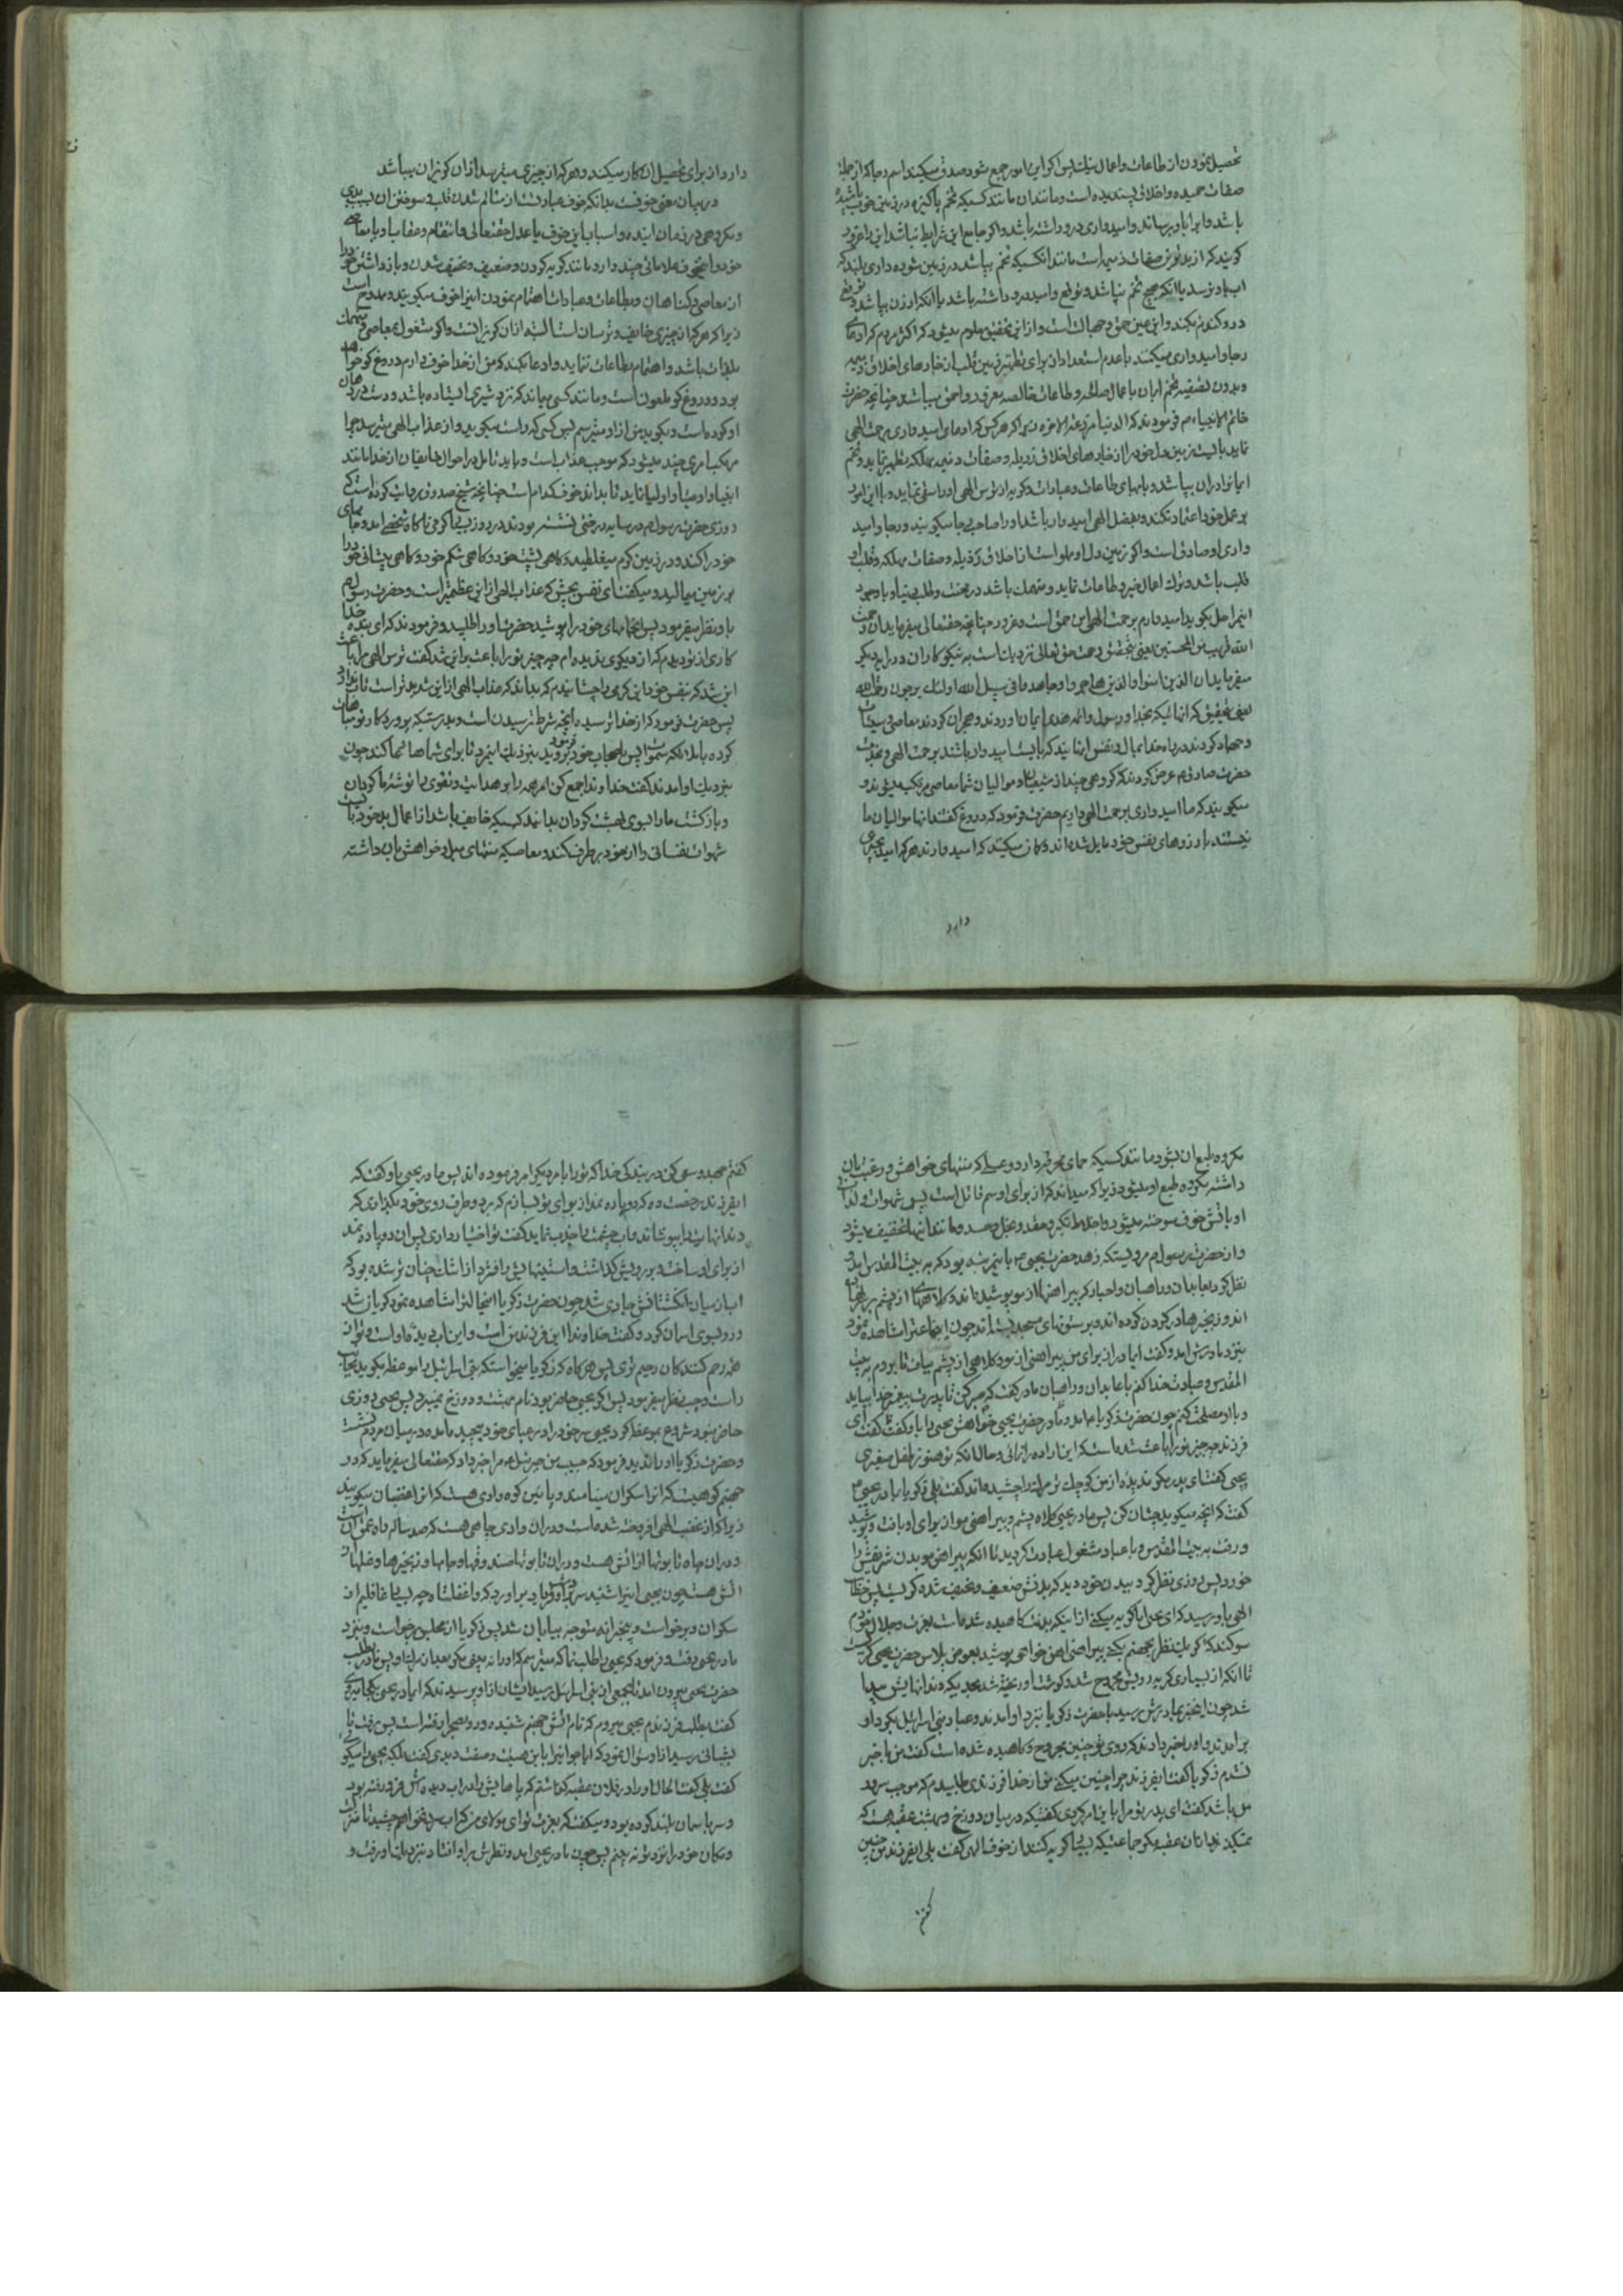 تحصیل نمودن از طاعات و اعمال نیك پس اکر این امور جمع شود صدق میکند اسم رجا که از جمله
صفات حمیده و اخلاق پسندیده است و مانند ان مانند کسیکه تخم پاکیزه در زمین خوب پاشیده
باشد و ابرا باو برساند و امیدواری درو داشته باشد و اکر جامع این شرایط نباشد انرا غرور
کویند که از بدترین صفات ذمیمه است مانند انکسیکه تخم بپاشد در زمین شوره داری بلند که
اب باو نرسد یا انکه هیچ تخم نپاشد و توقع و امید درو داشته باشد یا انکه ارزن بپاشد و توقع
درو کندم بکند و این عین حمق و جهالت است و از این تحقیق معلوم میشود که اکثر مردم که ادعای
رجا و امیدواری میکنند با عدم استعداد از برای تطهیر زمین قلب از خارهای اخلاق ذمیمه
و بدون تصفیه تخم ایمان با اعمال صالحه و طاعات خالصه مغرور و احمق میباشد چنانچه حضرت
خاتم الانبیاء ص فرمودند که الدنیا مزرعة الاخرة پس اکر هر کس که ادعای امیدواری برحمت الهی
نماید بایست زمین دل خود را از خارهای اخلاق رذیله و صفات دنیه مهلکه تطهیر نماید و تخم
ایمانرا در ان بپاشد و بابهای طاعات و عبادات و کریه از ترس الهی او را سقی نماید و با این امور
بر عمل خود اعتماد نکند و بفضل الهی امیدوار باشد او را صاحب رجا میکویند و رجا و امید
واری او صادق است و اکر زمین دل او مملو است از اخلاق رذیله و صفات مهلکه و قلب او
قلب باشد و ترك اعمال خیر و طاعات نماید و منهمك باشد در محبت و طلب دنیا و با وجود
این مراحل بکوید امیدوارم برحمت الهی این حمق است و غرور چنانچه حقتعالی میفرماید ان رحمت
الله قریب من المحسنین یعنی بتحقیق رحمت حق تعالی نزدیك است به نیکوکاران و در ایه دیکر
میفرماید ان الذین امنوا والذین هاجروا و جاهدوا فی سبیل الله اولئك یرجون رحمت الله
یعنی بتحقیق که انهائیکه بخدا و رسول و ائمه هدی ایمان اوردند و هجران کردند معاصی و سیئات
و جهاد کردند در راه خدا بمال و نفس اینهایند که بایست امیدوار باشند برحمت الهی و بخدمت
حضرت صادق ع عرض کردند که کروهی چند از شیعیان و موالیان شما معاصی مرتکب میشوند و
میکویند که ما امیدواری برحمت الهی داریم حضرت فرمود که دروغ کفتند انها موالیان ما
نیستند بارزوهای نفس خود مایل شده اند و کمان میکنند که امیدوارند هر که امید بچیزی
دارد
دارد از برای تحصیل ان کار میکند و هر که از چیزی میترسد از ان کریزان میباشد
در بیان معنی خوفست بدانکه خوف عبارتست از متالم شدن قلب و سوختن ان بسبب بدی
و مکروهی در زمان اینده و اسباب این خوف یا عدل حقتعالی و انتقام و عقاب او یا معاصی
خود و این خوف علاماتی چند دارد مانند کریه کردن و ضعیف و نحیف شدن و باز داشتن خود را
از معاصی و کناهان و بطاعات و عبادات اهتمام نمودن اینرا خوف میکویند و ممدوح است
زیرا که هر که از چیزی خایف و ترسان است البته از ان کریزانست و اکر مشغول بمعاصی و منهمك
بلذات باشد و اهتمام بطاعات ننماید و ادعا بکند که من از خدا خوف دارم دروغ کو خواهد
بود و دروغ کو ملعون است و مانند کسی بماند که نزد شیری ایستاده باشد و دست در دهان
او کرده است و بکوید من از او میترسم پس کسی که راست میکوید و از عذاب الهی میترسد چرا
مرتکب امری چند میشود که موجب عذاب است و باید تامل در احوال خایفان از خدا مانند
انبیا و اوصیا و اولیا نماید تا بداند خوف کدام است چنانچه شیخ صدوق روایت کرده است که
روزی حضرت رسول ص در سایه درختی نشسته بودند در روز بسیار کرمی ناکاه شخصی امد و جامهای
خود را کند و در زمین کرم میغلطید و کاهی پشت خود و کاهی شکم خود و کاهی پیشانی خود را
بر زمین میمالید و میکفت ای نفس بچش که عذاب الهی از این عظیمتر است و حضرت رسول ص
باو نظر میفرمود پس جامهای خود را پوشید حضرت او را طلبید و فرمودند که ای بنده خدا
کاری از تو دیدم که از دیکری ندیده ام چه چیز تو را باعث بر این شد کفت ترس الهی مرا باعث
این شد که بنفس خود این کرمی را چشانیدم که بداند که عذاب الهی از این شدیدتر است تاب ندارد
پس حضرت فرمود که از خدا ترسیده انچه شرط ترسیدن است و بدرستیکه پروردکار تو مباهات
کرده با ملائکه سموات پس باصحاب خود فرمود بروید بنزدیك این مرد تا برای شماها دعا کند چون
بنزدیك او امدند کفت خداوندا جمع کن امر همه را بر هدایت و تقوی را توشه ما کردان
و بازکشت ما را بسوی بهشت کردان بدانید کسیکه خایف باشد از اعمال بد خود بایست
شهوات نفسانی را از خود بر طرف کند و معاصیکه منتهای میل و خواهش بان داشته
مکروه طبع ان بشود مانند کسیکه حمای محرقه دارد و عسلی که منتهای خواهش و رغبت بان
داشته مکروه طبع او میشود زیرا که میداند که از برای او سم قاتل است پس شهوات و لذات
او باتش خوف سوخته میشود و اخلاط تکبر و حقد و بخل و حسد و مانند اینها تخفیف میشود
و از حضرت رسول ص مرویستکه زهد حضرت یحیی ع باین مرتبه بود که به بیت المقدس امد و
نظر کرد بعابدان و راهبان و احبار که پیراهنها از مو پوشیده اند و کلاههای از پشم بر سر نهاده
اند و زنجیرها در کردن کرده اند و برستونهای مسجد بسته اند چون این جماعترا مشاهده نمود
بنزد مادرش امد و کفت ایمادر از برای من پیراهنی از مو و کلاهی از پشم بباف تا بروم به بیت
المقدس و عبادت خدا کنم با عابدان و راهبان مادر کفت که صبر کن تا پدرت پیغمبر خدا بیاید
و با او مصلحت کنم چون حضرت ذکریا ع امد مادر حضرت یحیی خواهش یحیی را باو کفت کفت ای
فرزند چه چیز تو را باعث شده است که این اراده را نمائی و حال انکه تو هنوز طفل صغیری
یحیی کفت ای پدر مکر ندیده از من کوچك تر مرك را چشیده اند کفت بلی ذکریا بمادر یحیی ع
کفت که انچه میکوید چنان کن پس مادر یحیی کلاه پشم و پیراهن مو از برای او بافت و پوشید
و رفت به بیت المقدس و با عباد مشغول عبادت کردید تا انکه پیراهن مو بدن شریفش را
خورد پس روزی نظر کرد بدن خود دید که بدنش ضعیف و نحیف شده کریست پس خطاب
الهی باو رسید که ای یحیی ایا کریه میکنی از اینکه بدنت کاهیده شده است بعزت و جلال خودم
سوکند که اکر یك نظر بجهنم بکنی پیراهن اهن خواهی پوشید بعوض پلاس حضرت یحیی کریست
تا انکه از بسیاری کریه رویش مجروح شد و کوشت او ریخته شد بحدیکه دندانهایش پیدا
شد چون این خبر بمادرش رسید با حضرت ذکریا نزد او امدند و عباد بنی اسرائیل بکرد او
بر امدند و او را خبر دادند که روی تو چنین مجروح و کاهیده شده است کفت من با خبر
نشدم ذکریا کفت ایفرزند چرا چنین میکنی من از خدا فرزندی طلبیدم که موجب سرور
من باشد کفت ای پدر تو مرا باین امر کردی کفتیکه در میان دوزخ و بهشت عقبه هست که
نمیکذرند از ان عقبه مکر جماعتیکه بسیار کریه کنند از خوف الهی کفت بلی ایفرزند من چنین
کفتم
کفتم جهد و سعی کن در بندکی خدا که تو را بامر دیکر امر فرموده اند پس مادر یحیی باو کفت که
ایفرزند رخصت ده که دو پاره نمد از برای تو بسازم که بر دو طرف روی خود بکذاری که
دندانهایت را بپوشاند و اب چشمت را جذب نماید کفت تو اختیار داری پس ان دو پاره نمد
از برای او ساخت و بر رویش کذاشت و استینهایش را فشرد از اشك چنان تر شده بود که
اب از میان انکشتانش جاری شد چون حضرت ذکریا این حالترا مشاهده نمود کریان شد
و رو بسوی اسمان کرد و کفت خداوندا این فرزند من است و این اب دیده او است و تو از
همه رحم کنندکان رحیم تری پس هر کاه که ذکریا میخواستکه بنی اسرائیل را موعظه بکوید بجانب
راست و چپ نظر میفرمود پس اکر یحیی حاضر بود نام بهشت و دوزخ نمیبرد پس یحیی روزی
حاضر نبود شروع بموعظه کرد یحیی سر خود را در عبای خود پیچیده امده در میان مردم نشست
و حضرت ذکریا او را ندید فرمود که حبیب من جبرئیل ع مرا خبر داد که حقتعالی میفرماید که در
جهنم کوهیست که انرا سکران مینامند و پائین کوه وادی هست که انرا غضبان میکویند
زیرا که از غضب الهی افروخته شده است و در ان وادی چاهی هست که صد ساله راه عمق انست
و در ان چاه تابوتها از اتش هست و در ان تابوتها صندوقها و جامها و زنجیرها و غلها از
اتش هست چون یحیی اینرا شنید سر برداشت و فریاد بر اورد که واغفلتاه چه بسیار غافلیم از
سکران و برخواست و متحیرانه متوجه بیابان شد پس ذکریا از مجلس برخواست و بنزد
مادر یحیی رفت و فرمود که یحیی را طلب نما که میترسم که او را نه بینی مکر بعد از مرك او پس مادر بطلب
حضرت یحیی بیرون امد تا بجمعی از بنی اسرائیل رسید ایشان از او پرسیدند که ایمادر یحیی بکجا میروی
کفت بطلب فرزندم یحیی میروم که نام اتش جهنم شنیده و رو بصحرا رفته است پس رفت تا
بشبانی رسید از او سوال نمود که ایا جوانیرا باین هیئت و صفت دیدی کفت بلکه یحیی را میکوئی
کفت بلی کفت الحال او را در فلان عقبه کذاشتم که پاهایش را در اب دیده اش فرو رفته بود
و سر باسمان بلند کرده بود و میکفت که بعزت تو ای مولای من که اب سرد نخواهم چشید تا منزلت
و مکان خود را نزد تو نه بینم پس چون مادر یحیی امد و نظرش بر او افتاد بنزدیك او رفت و